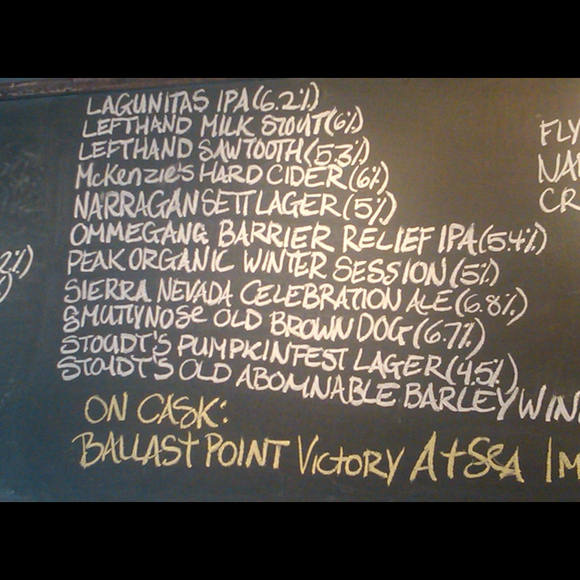 LAGUNITAS IPA (6.2%)
LEFTHAND MILK STOUT (6%)
LEFTHAND SAWTOOTH (5.3%)
McKenzie's HARD CIDER (6%)
NARRAGANSETT LAGER (5%)
OMMEGANG BARRIER RELIEF IPA (5.4%)
PEAK ORGANIC WINTER SESSION (5%)
SIERRA NEVADA CELEBRATION ALE (6.8%)
SMUTTYNOSE OLD BROWN DOG (6.7%)
STOUDT'S PUMPKINFEST LAGER (4.5%)
STOUDT'S OLD ABOMNABLE BARLEYWIN
ON CASK:
BALLAST POINT VICTORY AT SEA IM
2%)
)
FLY
NA
CR